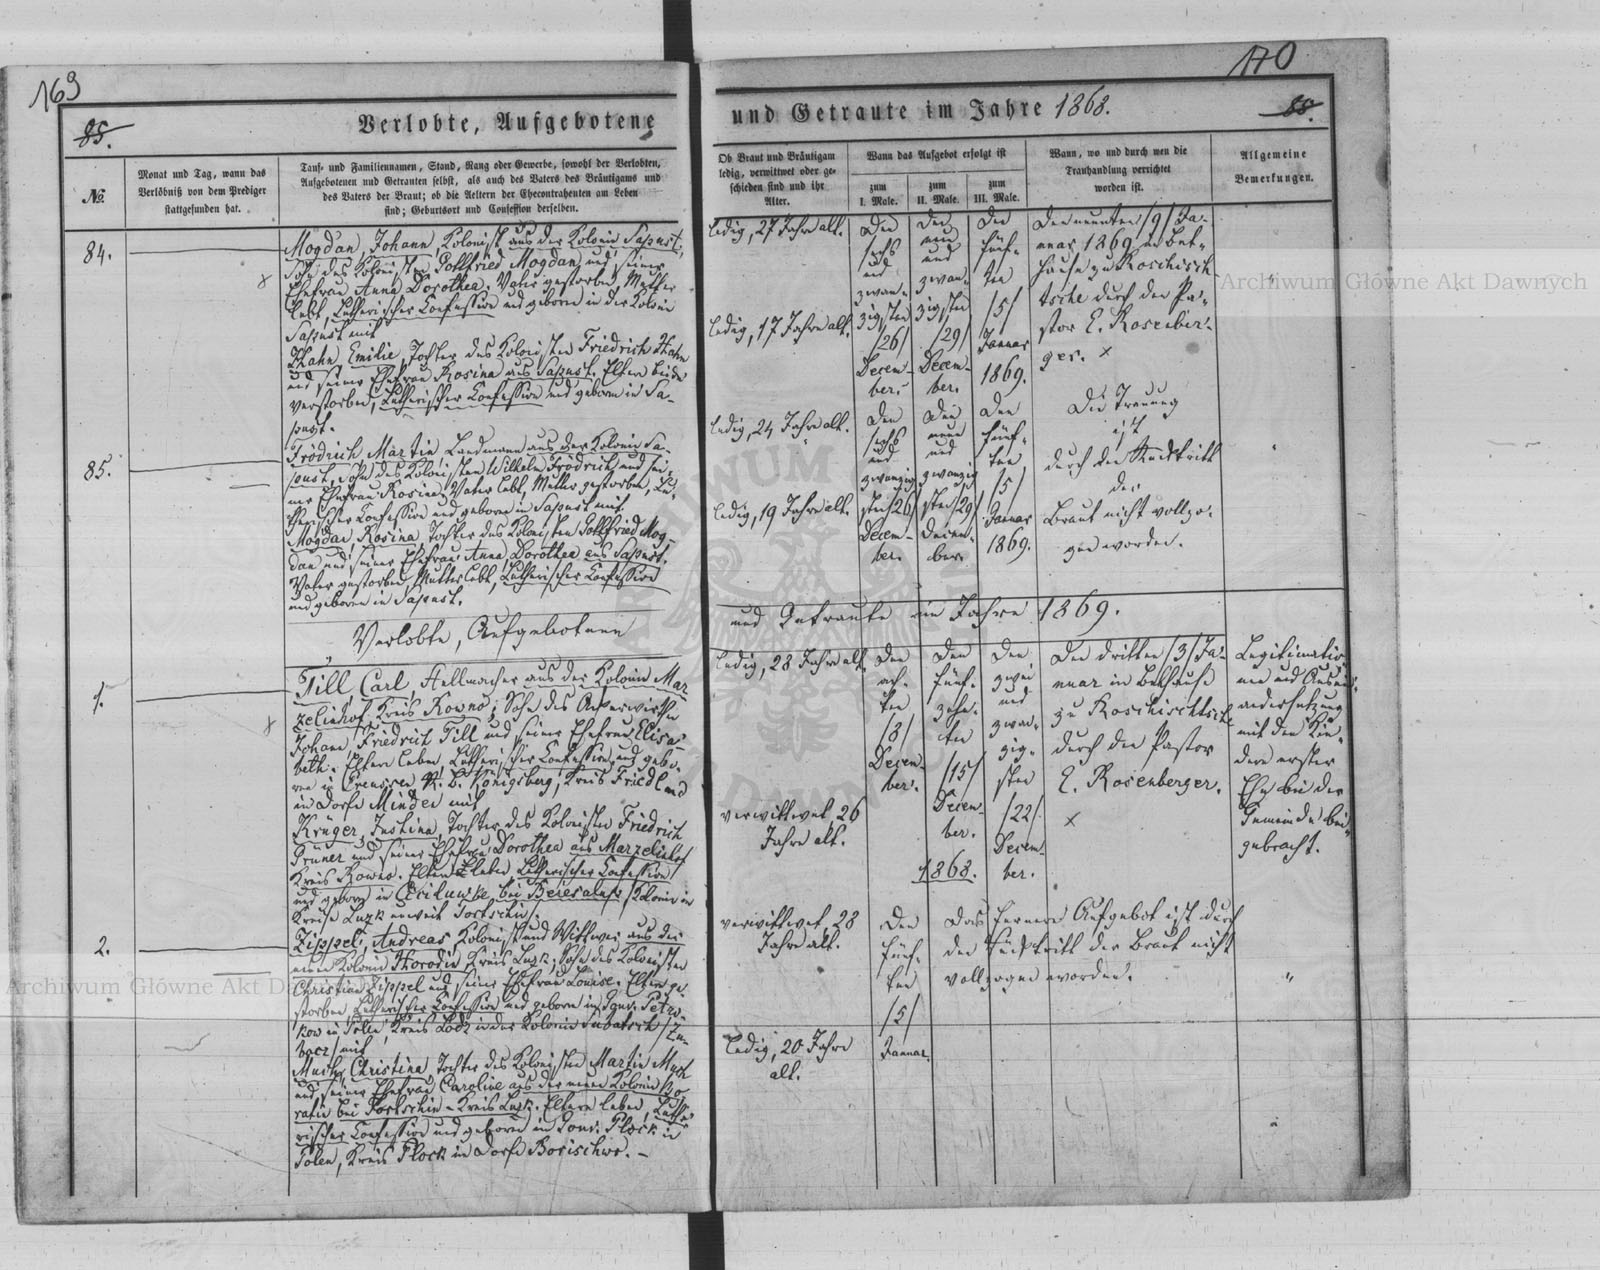 169
85.
Verlobte, Aufgebotene
№.
Monat und Tag, wann das
Verlöbniß von dem Prediger
stattgefunden hat.
Tauf- und Familiennamen, Stand, Rang oder Gewerbe, sowohl der Verlobten,
Aufgebotenen und Getrauten selbst, als auch des Vaters des Bräutigams und
des Vaters der Braut; ob die Aeltern der Ehecontrahenten am Leben
sind; Geburtsort und Confession derselben.
84.
Mogdan, Johann, Kolonist aus der Kolonie Sapust,
Sohn des Kolonisten Gottfried Mogdan und seiner
Ehefrau Anna Dorothea. Vater gestorben, Mutter
lebt, Lutherischer Confession und geboren in der Kolonie
Sapust mit
Hahn, Emilie, Tochter des Kolonisten Friedrich Hahn
und seiner Ehefrau Rosina aus Sapust. Eltern beide
verstorben, Lutherischer Confession und geboren in Sa-
pust.
85.
Frödrich Martin Landmann aus der Kolonie Sa-
pust, Sohn des Kolonisten Wilhelm Frödrich und sei-
ner Ehefrau Rosina. Vater lebt, Mutter gestorben, Lu-
therischer Confession und geboren in Sapust mit
Mogdan, Rosina, Tochter des Kolonisten Gottfried Mog-
dan und seiner Ehefrau Anna Dorothea aus Sapust.
Vater gestorben, Mutter lebt, Lutherischer Confession
und geboren in Sapust.
Verlobte, Aufgebotene
1.
Till, Carl, Stellmacher aus der Kolonie Mar
zelinhof, Kreis Rowno, Sohn des
Johann Friedrich Till und seiner Ehefrau Elisa-
beth. Eltern leben, Lutherischer Confession und gebo-
ren in Preussen R. B. Königsberg, Kreis Friedland
im Dorfe Minden mit
Krüger, Justina, Tochter des Kolonisten Friedrich
Prüner und seiner Ehefrau Dorothea aus Marzelinhof
Kreis Rowno. Eltern leben, Lutherischer Confession
und geboren in bei /Kolonie im
Kreise Luzk unweit Tortschin/.
2.
Zippel, Andreas, Kolonist und Wittwer aus der
neuen Kolonie Horodin Kreis Luzk, Sohn des Kolonisten
Christian Zippel und seiner Ehefrau Louise. Eltern ge-
storben, Lutherischer Confession und geboren im Gouv. Petro-
kow in Polen, Kreis Lodz in der Kolonie
mit
Much, Christina, Tochter des Kolonisten Martin Much
und seiner Ehefrau Caroline aus der neuen Kolonie Bo-
ratin bei Tortschin - Kreis Luzk. Eltern leben, Luthe-
rischer Confession und geboren im Gouv. Plock in
Polen, Kreis Plock im Dorfe Borischwo. -
170
85.
und Getraute im Jahre 1868.
Ob Braut und Bräutigam
ledig, verwittwet oder ge-
schieden sind und ihr
Alter.
Wann das Aufgebot erfolgt ist
zum
I. Male.
zum
II. Male.
zum
III. Male.
Wann, wo und durch wen die
Trauhandlung verrichtet
worden ist.
Allgemeine
Bemerkungen.
ledig, 27 Jahre alt.
ledig, 17 Jahre alt.
Den
sechs
und
zwan-
zigsten
/26/
Decem-
ber.
Den
neun
und
zwan-
zigsten
/29/
Decem-
ber.
Den
fünf-
ten
/5/
Januar
1869.
Den neunten /9/ Ja-
nuar 1869 im Bet-
hause zu Roschisch
tsche durch den Pa-
stor E. Rosenber-
ger. x
ledig, 24 Jahre alt.
ledig, 19 Jahre alt.
Den
sechs
und
zwanzig
sten /26/
Decem-
ber.
Den
neun
und
zwanzig
sten /29/
Decem-
ber.
Den
fünf-
ten
/5/
Januar
1869.
Die Trauung
ist
durch den Rücktritt
der
Braut nicht vollzo-
gen worden.
und Getraute im Jahre 1869.
ledig, 28 Jahre alt.
verwittwet, 26
Jahre alt.
Den
ach-
ten
/8/
Decem-
ber.
Den
fünf-
zehn-
ten
/15/
Decem-
ber.
1868.
Den
zwei
und
zwan-
zig-
sten
/22/
Decem-
ber.
Den dritten /3/ Ja-
nuar im Bethause
zu Roschischtsche
durch den Pastor
E. Rosenberger.
x
Legitimatio-
nen und Ausein-
andersetzung
mit den Kin-
dern erster
Ehe bei der
Gemeinde bei-
gebracht.
verwittwet, 28
Jahre alt.
ledig, 20 Jahre
alt.
Den
fünf-
ten
/5/
Januar.
Das fernere Aufgebot ist durch
den Rücktritt der Braut nicht
vollzogen worden.
Archiwum Główne Akt Dawnych
Archiwum Główne Akt Dawnych